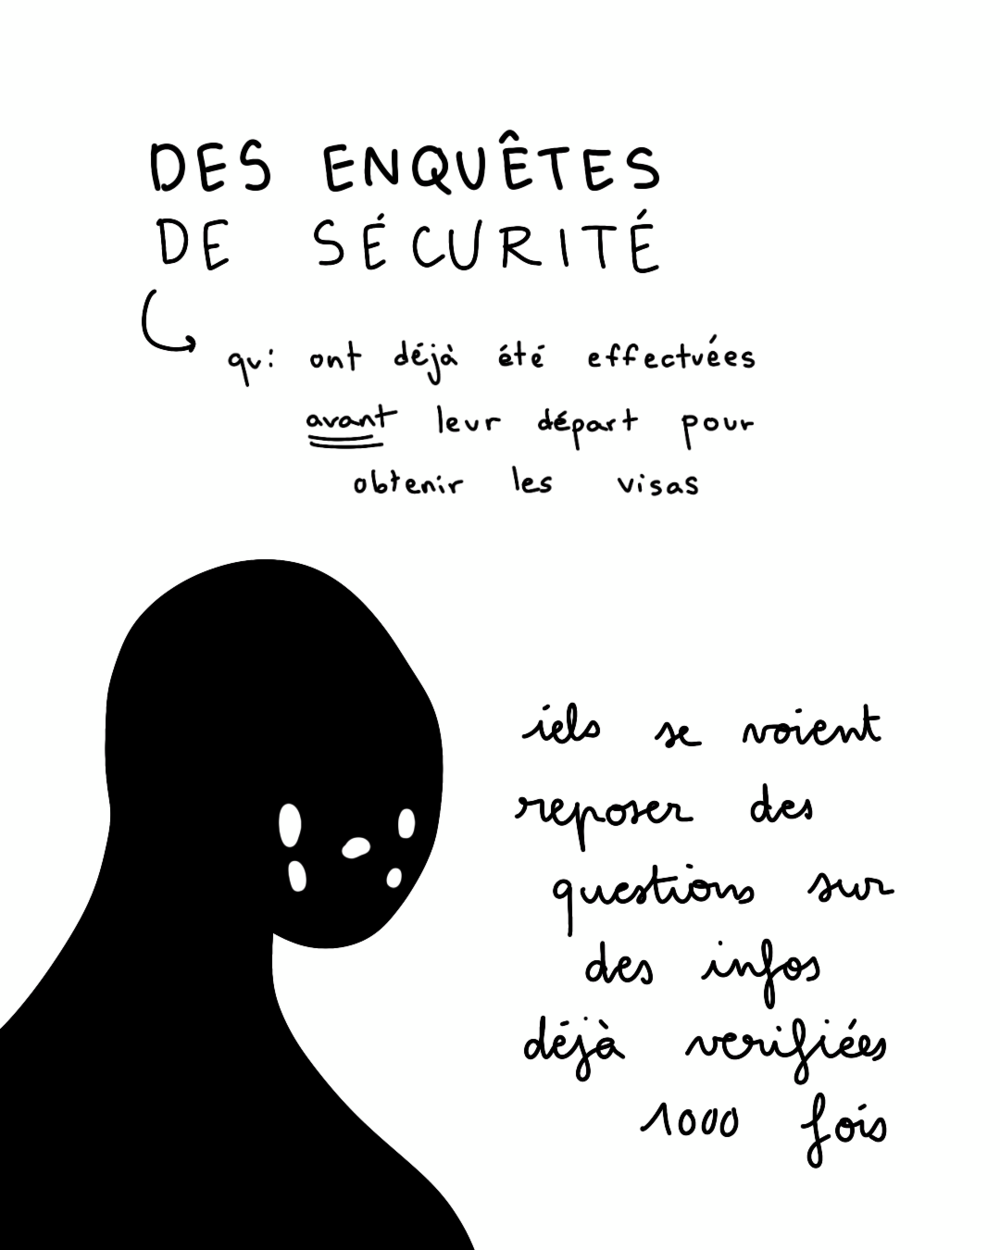 DES ENQUÊTES
DE SÉCURITÉ
qui ont déjà été effectuées
avant leur départ pour
obtenir les visas
iels se voient
reposer des
questions sur
des infos
déjà verifiées
1000 fois